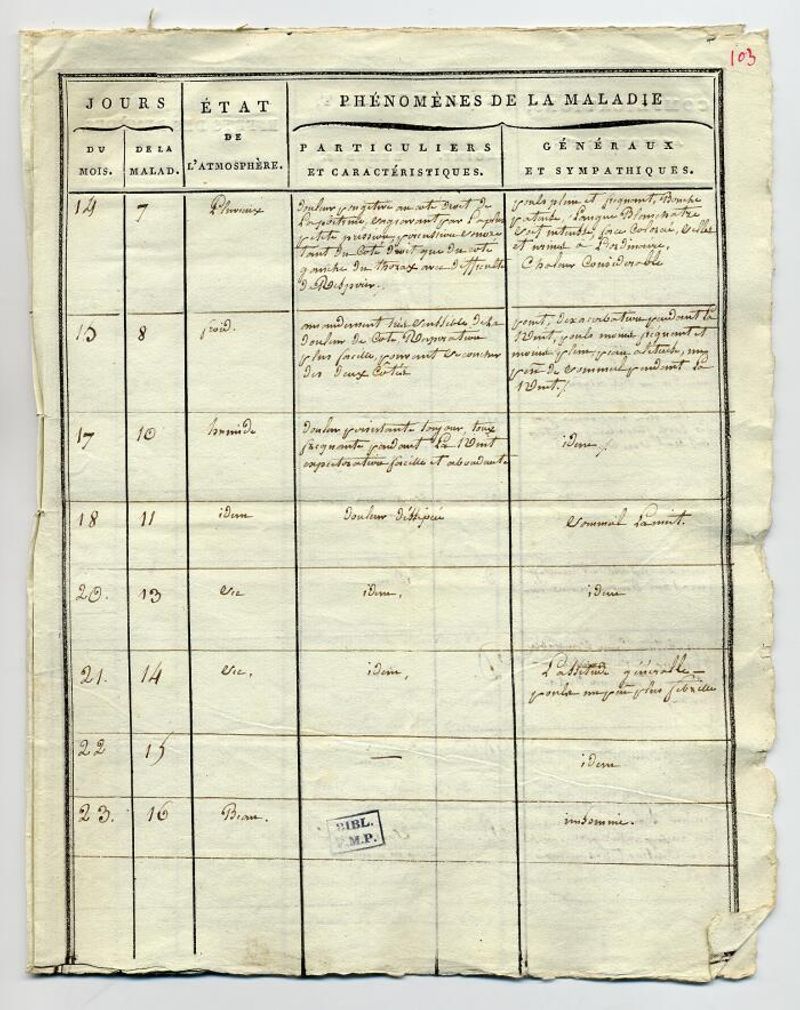 103
JOURS
ÉTAT
DE
L'ATMOSPHÈRE.
PHÉNOMÈNES DE LA MALADIE
DU
MOIS.
DE LA
MALAD.
PARTICULIERS
ET CARACTÉRISTIQUES.
GÉNÉRAUX
ET SYMPATHIQUES.
14 7 Pluvieux
douleur pongitive au coté Droit de
La poitrine, augmentant par La plus
petite pression, percussion sonore
tant du Coté Droit que du coté
gauche du thorax avec difficulté
de Respirer.
pouls plein et fréquent, Bouche
pateuse, Langue Blanchatre
soif intense, face Colorée, selles
et urines à L'ordinaire,
Chaleur Considerable
15 8 froid.
amendement très sensible de la
douleur de Coté Respiration
plus facille, pouvant se coucher
des deux Côtés
point d'exacerbation pendant la
Nuit, pouls moins fréquent et
moins plein, peau, un
peu de sommeil pendant la
Nuit.
17 10 humide
douleur persistante toujour, toux
frequante pendant La Nuit
expectoration facille et abondante
idem
18 11 idem douleur dissipée sommeil La nuit.
20. 13 sec idem. idem
21. 14 sec. idem.
Lassitude généralle
pouls un peu plus fébrille
22 15 — idem
23. 16 Beau. insomnie.
BIBL.
F.M.P.